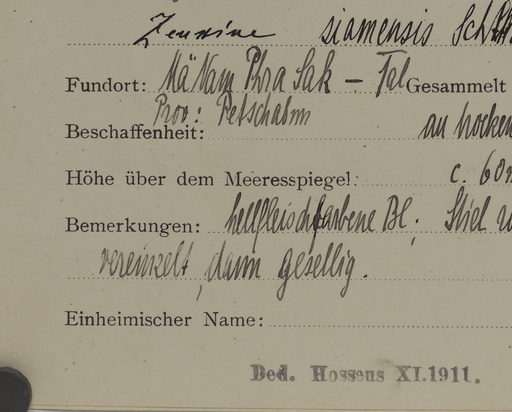 Zeuxine siamensis Schltr.
Fundort: Mä Nam Phra Sak – Tal Gesammelt
Prov: Petschabun
Beschaffenheit: an hocken
Höhe über dem Meeresspiegel: c. 60
Bemerkungen: hellfleischfarbene Bl; Stiel
vereinzelt, dann gesellig.
Einheimischer Name:
Ded. Hosseus XI.1911.